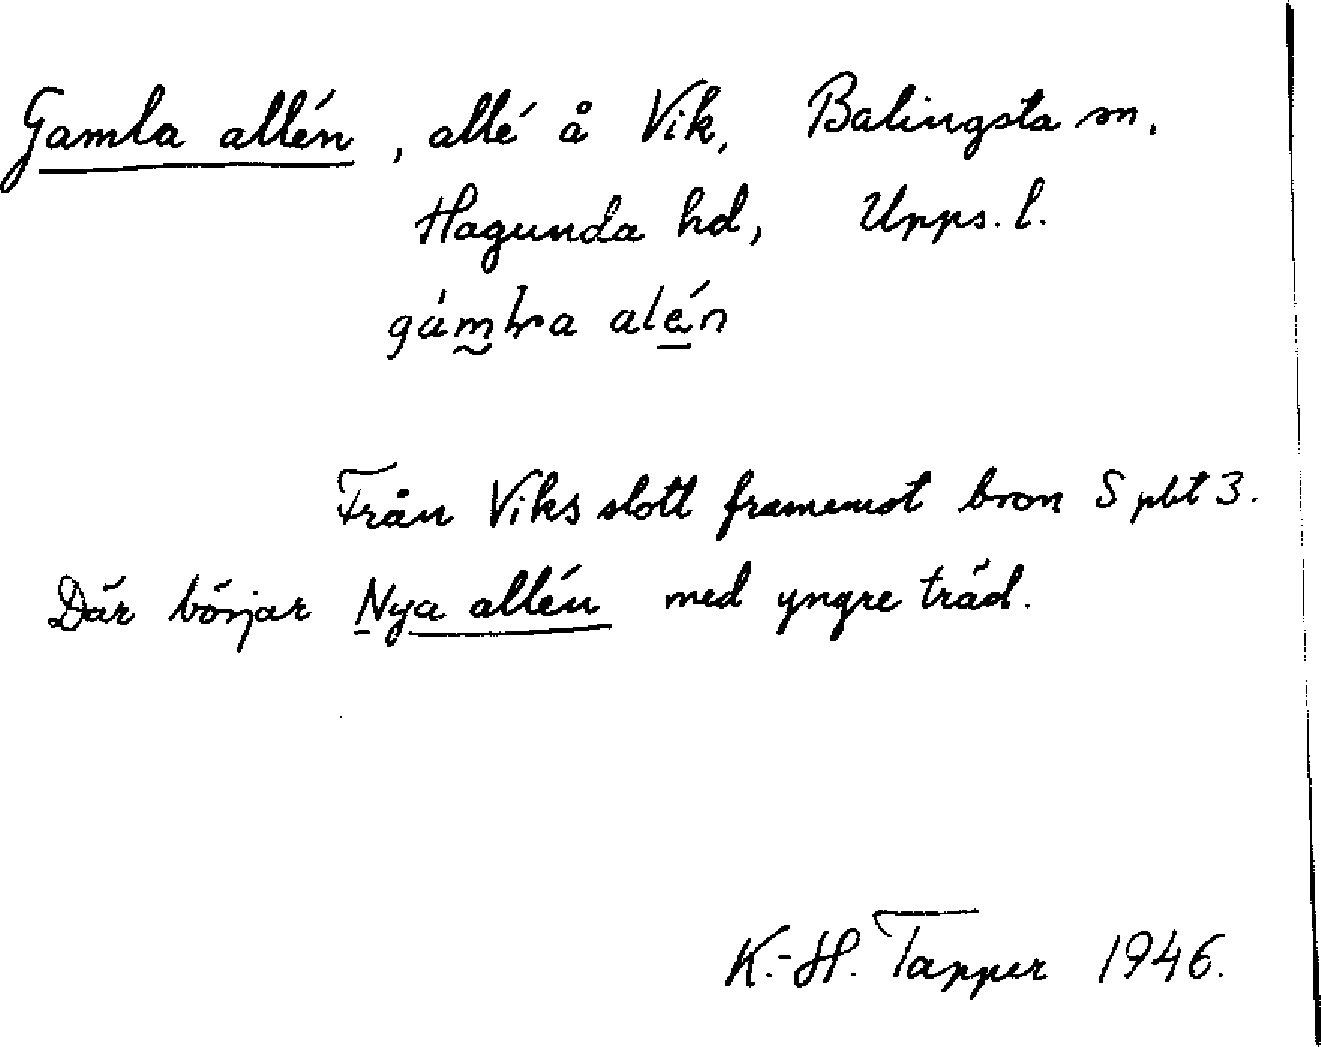 Gamla allén, allé å Vik, Balingsta sn.
Hagunda hd, Upps. l.
alén
Från Viks slott framemot bron S pkt 3.
Där börjar Nya allén med yngre träd.
K.-H. Tapper 1946.